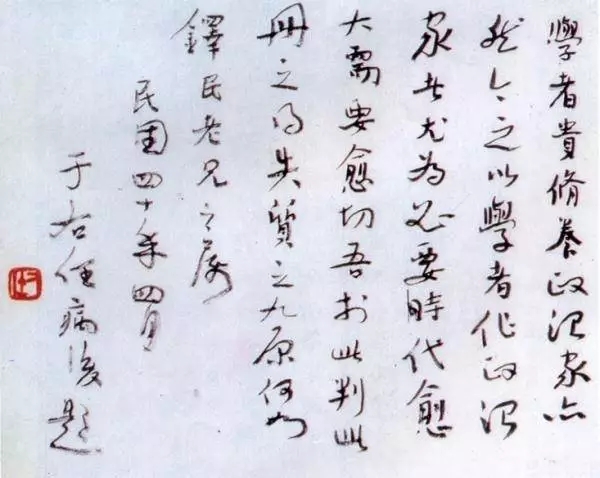 學者貴脩養政治家亦
然今之以學者作政治
家者尤為必要時代愈
大需要愈切吾於此判此
冊之得失質之九原何如
鐸民老兄之属
民國四十年四月
于右任病後題